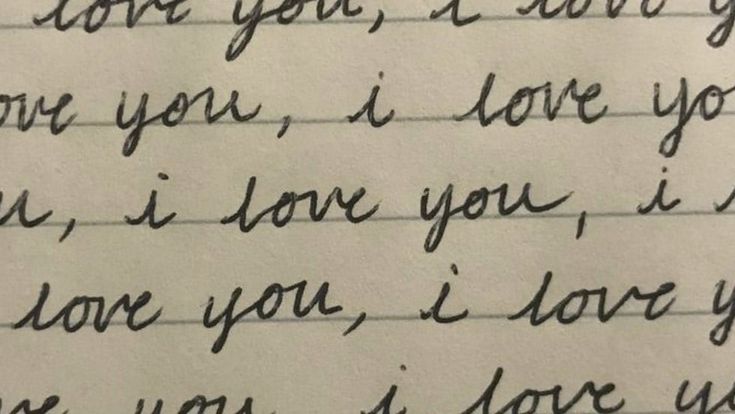 love you, i love y
ove you, i love yo
u, i love you, i
love you, i love y
ve you, i love yo